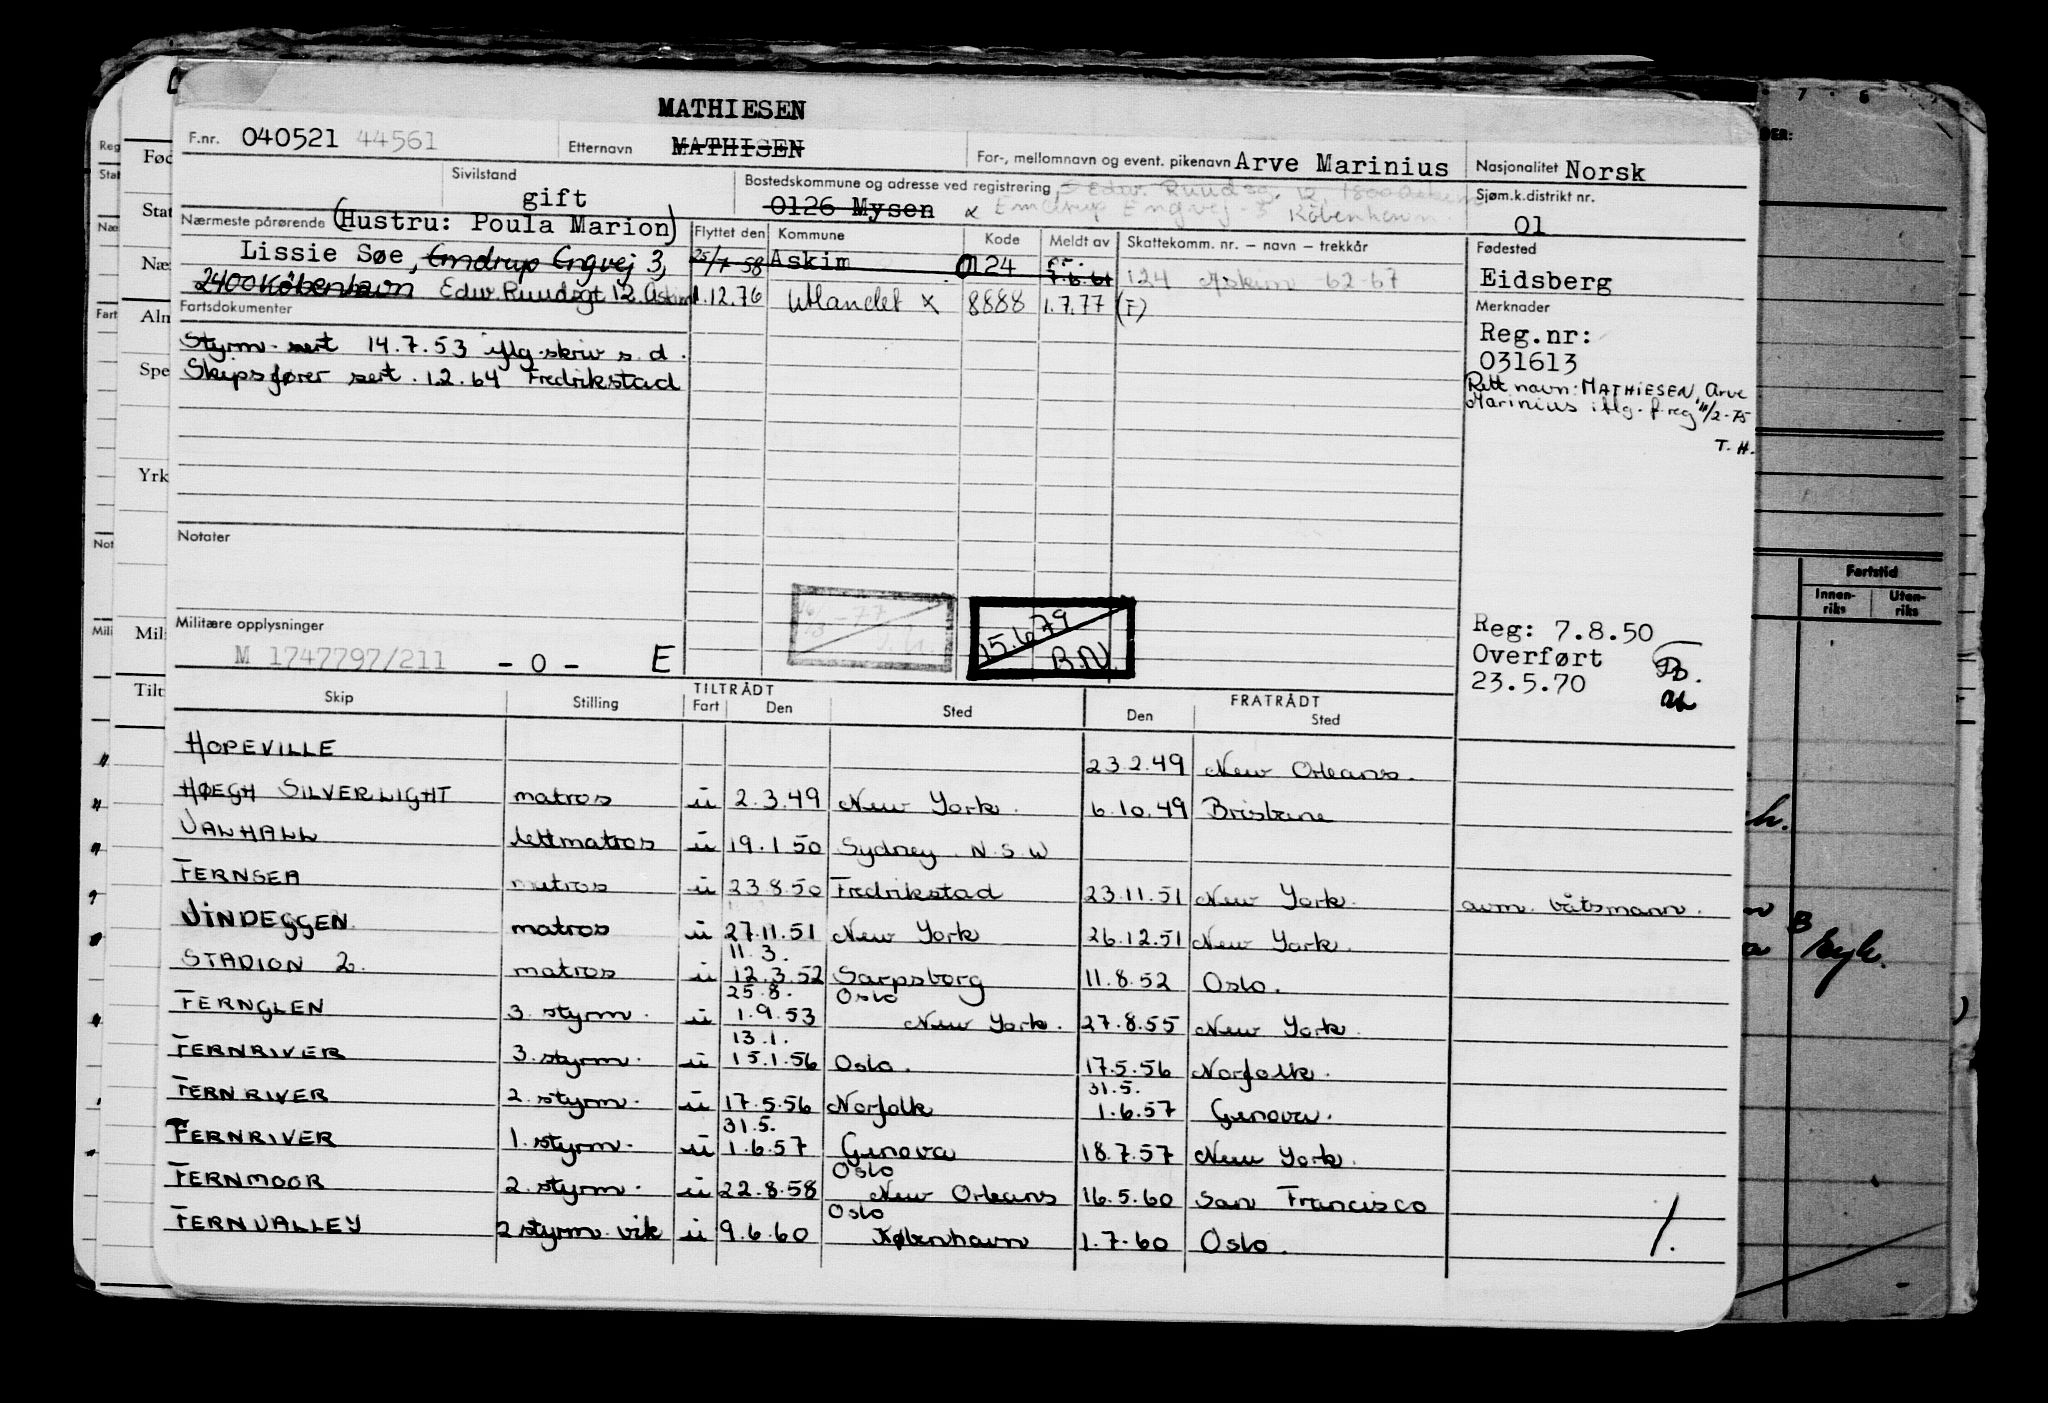 MATHIESEN
F.nr. 040521 44561 Etternavn MATHISEN For-, mellomnavn og event. pikenavn Arve Marinius Nasjonalitet Norsk
Sivilstand gift Bostedskommune og adresse ved registrering Edw. Ruudsg. 12, 1800 Askim Sjøm.k.distrikt nr. 01
0126 Mysen x Emdrup Engvej 3 København.
Nærmeste pårørende (Hustru: Poula Marion) Flyttet den Kommune Kode Meldt av Skattekomm. nr. – navn – trekkår Fødested
Lissie Søe, Emdrup Engvej 3, 25/7-58 Askim 0124 7.6.61 124 Askim 62-67 Eidsberg
2400 København Edw. Ruudsgt 12 Askim 1.12.76 Utlandet x 8888 1.7.77 (F)
Fartsdokumenter Merknader
Styrm. sert 14.7.53 iflg. skriv s. d. Reg.nr:
031613
Skipsfører sert. 1.2.64 Fredrikstad
Rett navn: MATHIESEN, Arve
Marinius iflg. f.reg 11/2-75
T.H.
Notater
15.6.79
B.N.
Militære opplysninger
M 1747797/211 - 0 - E
Reg: 7.8.50
Overført
23.5.70
TILTRÅDT FRATRÅDT
Skip Stilling Fart Den Sted Den Sted
HOPEVILLE 23.2.49 New Orleans.
HØEGH SILVERLIGHT matros u 2.3.49 New York. 6.10.49 Brisbane
VALHALL lettmatros u 19.1.50 Sydney N.S.W
FERNSEA matros u 23.8.50 Fredrikstad 23.11.51 New York. avm. båtsmann.
VINDEGGEN matros u 27.11.51 New York 26.12.51 New York.
11.3.
STADION 2. matros u 12.3.52 Sarpsborg 11.8.52 Oslo.
25.8. Oslo
FERNGLEN 3. styrm. u 1.9.53 New York. 27.8.55 New York.
13.1.
FERNRIVER 3. styrm. u 15.1.56 Oslo. 17.5.56 Norfolk.
31.5.
FERNRIVER 2. styrm. u 17.5.56 Norfolk 1.6.57 Genova.
31.5.
FERNRIVER 1. styrm. u 1.6.57 Genova 18.7.57 New York.
Oslo
FERNMOOR 2. styrm. u 22.8.58 New Orleans 16.5.60 San Francisco
Oslo
FERNVALLEY 2 styrm. vik u 9.6.60 København 1.7.60 Oslo.
Reg
Stat
Næ
Fart
Not
Mili
Fød
Stat
Næ
Alm
Spe
Yrk
Mil
Tilt
DER:
Fartstid
Innen-
riks
Uten-
riks